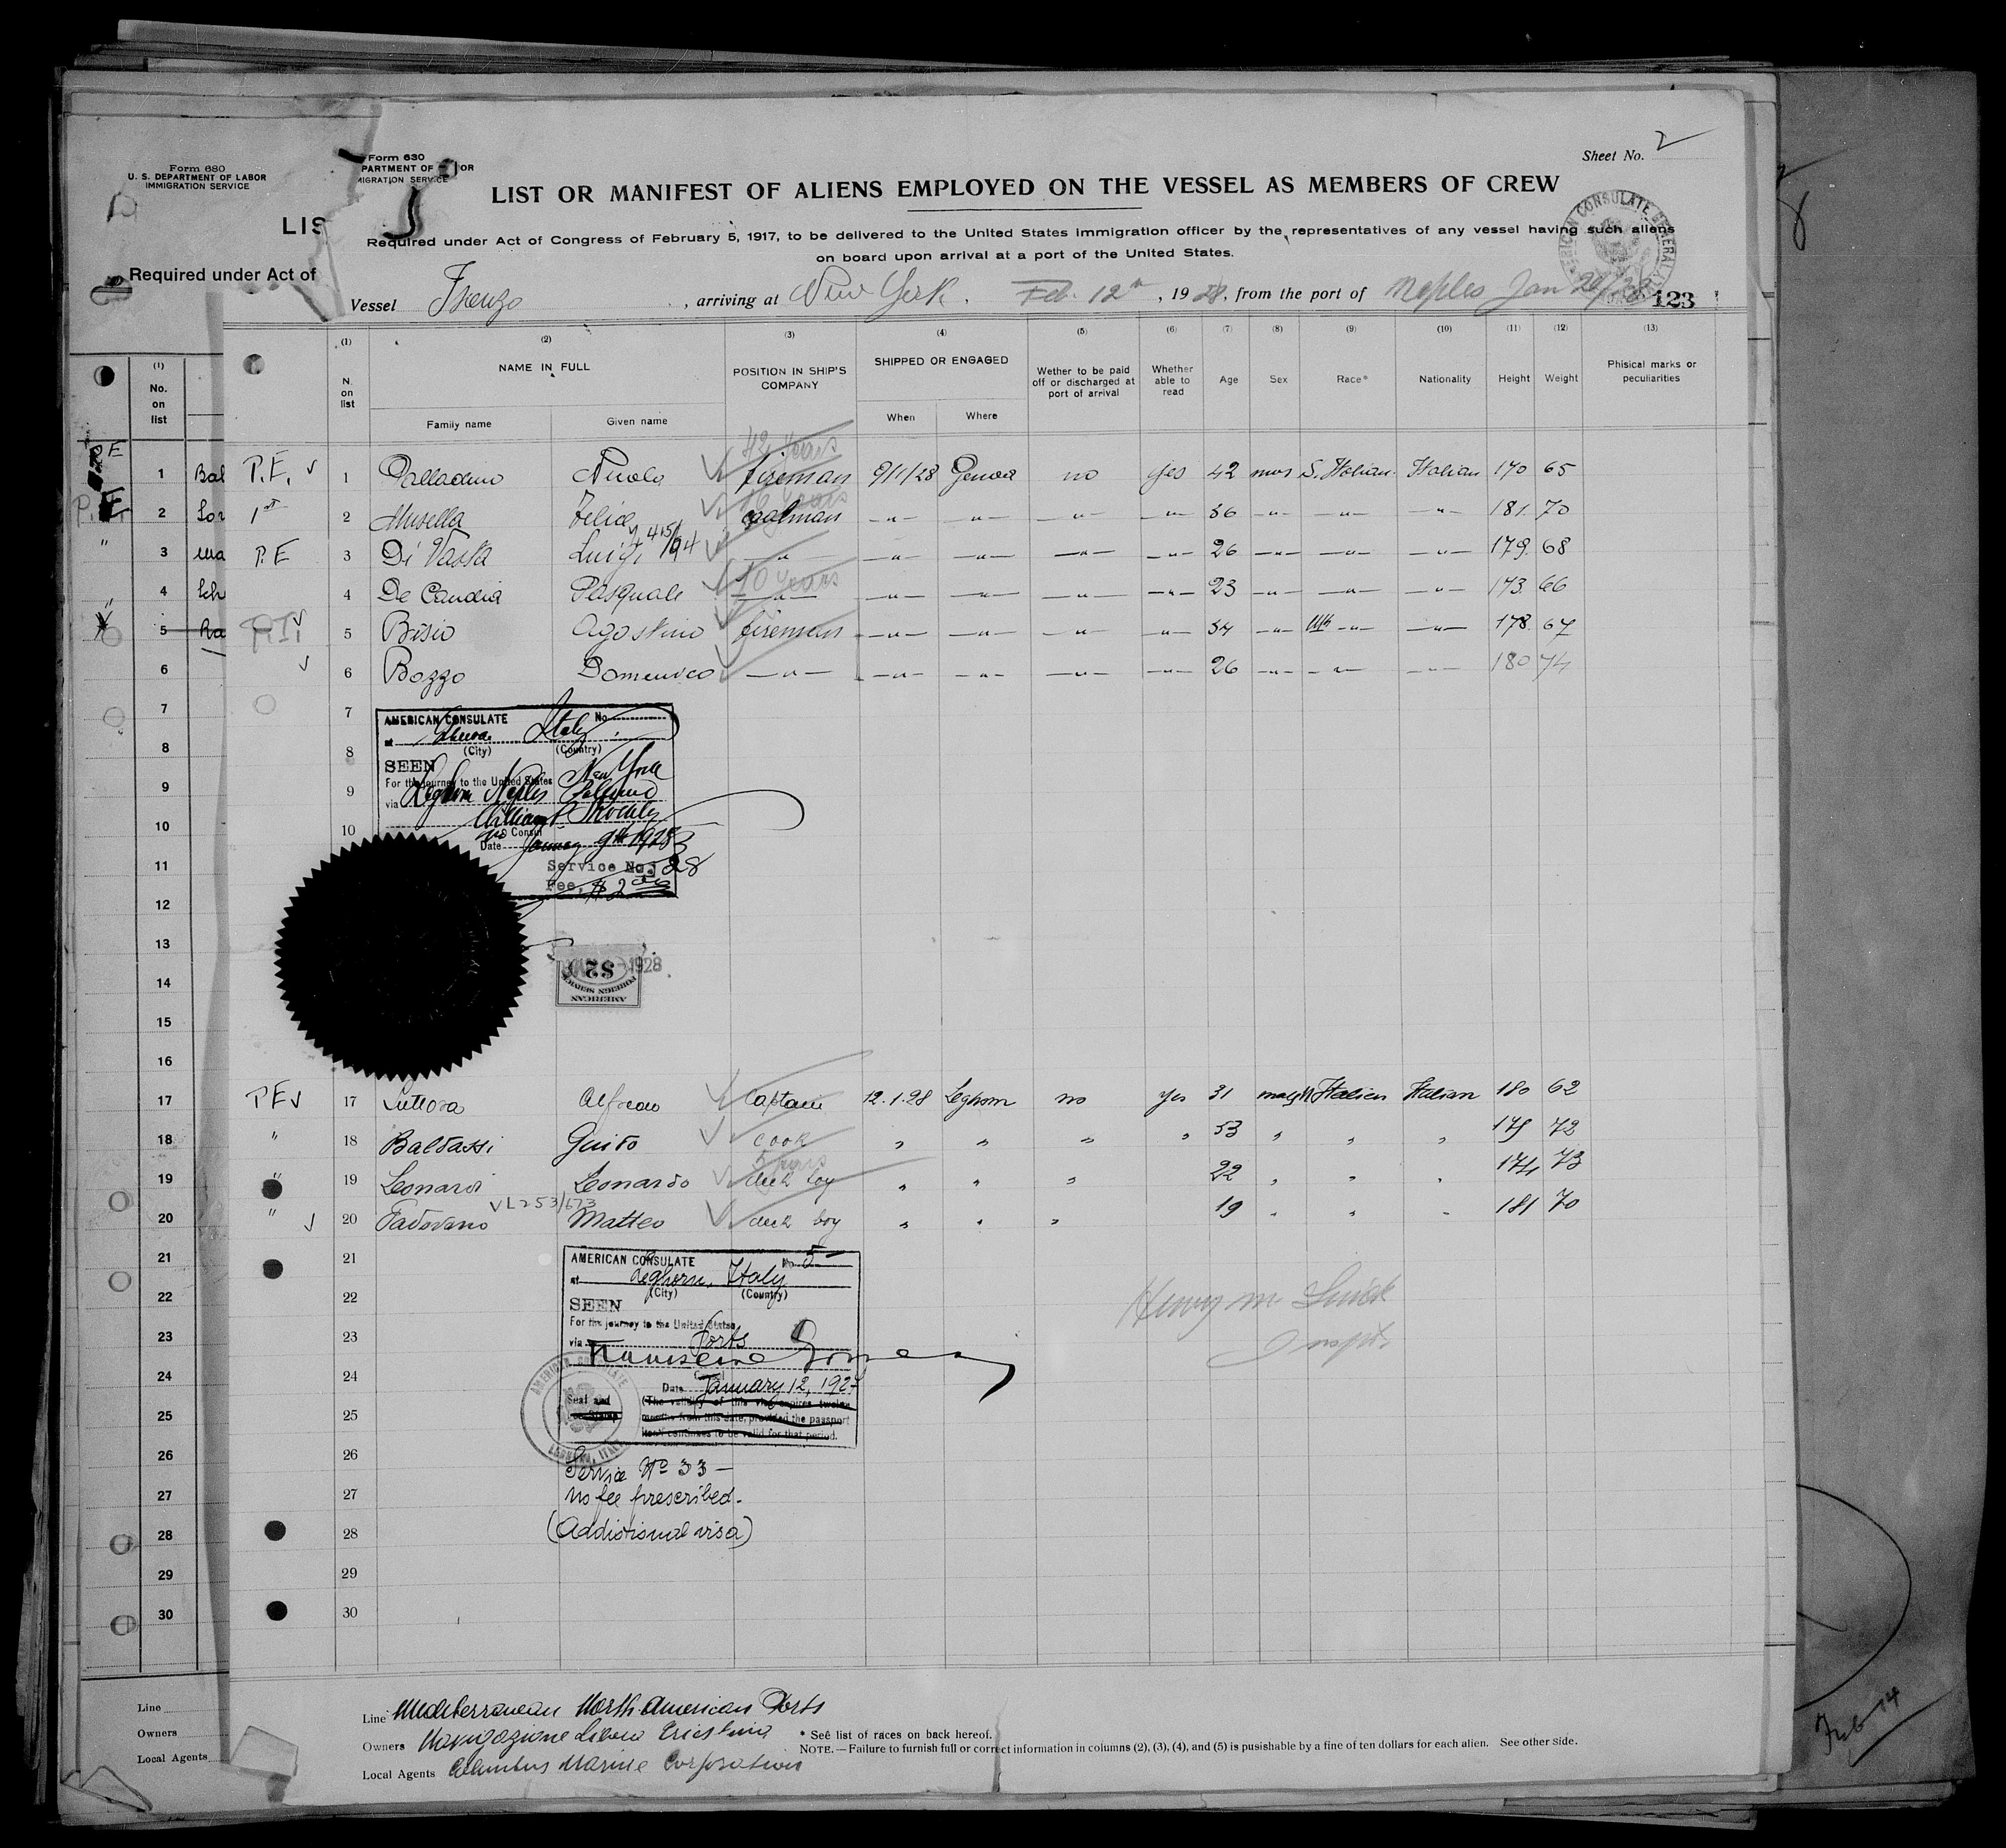 Form 680
U. S. DEPARTMENT OF LABOR
IMMIGRATION SERVICE
LIS
Required under Act of
Form 630
PARTMENT OF OR
MIGRATION SERVICE
Sheet No. 2
LIST OR MANIFEST OF ALIENS EMPLOYED ON THE VESSEL AS MEMBERS OF CREW
Required under Act of Congress of February 5, 1917, to be delivered to the United States immigration officer by the representatives of any vessel having such aliens
on board upon arrival at a port of the United States.
Vessel , arriving at New York. Feb. 12th, 1928, from the port of Naples Jan 26/28 123
(1) (2) (3) (4) (5) (6) (7) (8) (9) (10) (11) (12) (13)
N. on list NAME IN FULL POSITION IN SHIP'S COMPANY SHIPPED OR ENGAGED Wether to be paid off or discharged at port of arrival Whether able to read Age Sex Race* Nationality Height Weight Phisical marks or peculiarities
Family name Given name When Where
42 years
P.E. 1 Palladino Nicola fireman 9/1/28 Genoa no yes 42 S. Italian Italian 170 65
1st 2 Musella Felice coalman —"— —"— —"— —"— 36 —"— —"— —"— 181 70
P.E 3 Di Vasta Luigi —"— —"— —"— —"— —"— 26 —"— —"— —"— 179 68
10 years
4 De Candia Pasquale —"— —"— —"— —"— —"— 23 —"— —"— —"— 173 66
5 Bisio Agostino fireman —"— —"— —"— —"— 34 —"— —"— —"— 178 67
6 Bozzo Domenico —"— —"— —"— —"— —"— 26 —"— —"— —"— 180 74
7
AMERICAN CONSULATE No.
at Genoa Italy
(City) (Country)
8
SEEN
For the journey to the United States New York
9
via Leghorn Naples
10
Consul
Date January 9th 1928
Service No. 28
Fee, $2
1928
$2
AMERICAN
FOREIGN SERVICE
P E 17 Alfredo Captain 12.1.28 Leghorn no yes 31 Italian Italian 180 62
" 18 Baldassi Guido cook " " " " 53 " " " 179 72
5 years
" 19 Leonardi Leonardo deck boy " " " 22 " " " 174 73
VL253/673
" 20 Padovano Matteo deck boy " " " 19 " " " 181 70
21
AMERICAN CONSULATE No. 5
at Leghorn, Italy
(City) (Country)
22
SEEN
For the journey to the United States
23
via Ports
24
Date January 12, 192
Seal and
(The validity of this visa expires twelve
25
months from this date, provided the passport
continues to be valid for that period.
26
Service No 33 —
27
no fee prescribed.
28
(Additional visa)
29
30
Henry M.
Inspt.
Line Mediterranean North American Ports
Owners Navigazione Libera Triestina
Local Agents Columbus Marine Corporation
* See list of races on back hereof.
NOTE.—Failure to furnish full or correct information in columns (2), (3), (4), and (5) is pusishable by a fine of ten dollars for each alien. See other side.
(1)
No.
on
list
1 Bal
2 Lor
3
4 Sch
5 Ra
6
7
8
9
10
11
12
13
14
15
16
17
18
19
20
21
22
23
24
25
26
27
28
29
30
Line
Owners
Local Agents
Feb 14